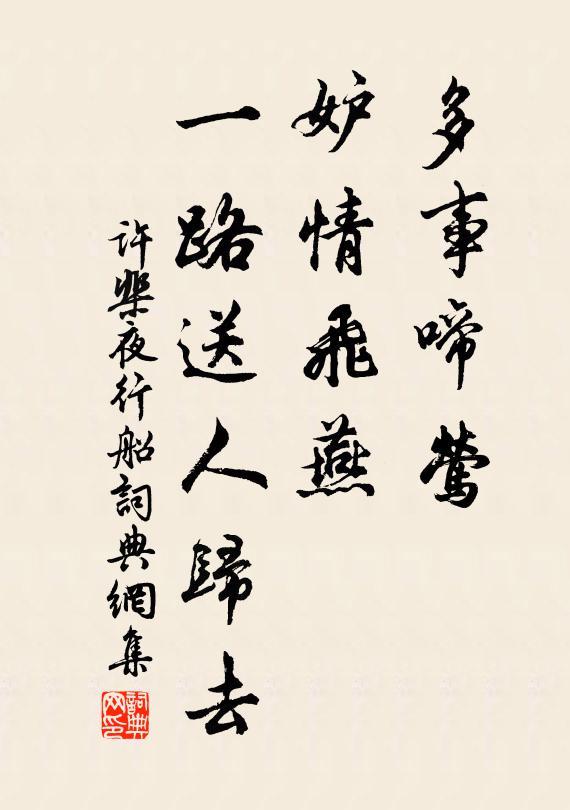 多事啼鶯
妒情飛燕
一路送人歸去
許棐夜行船詞典網集
詞典網印